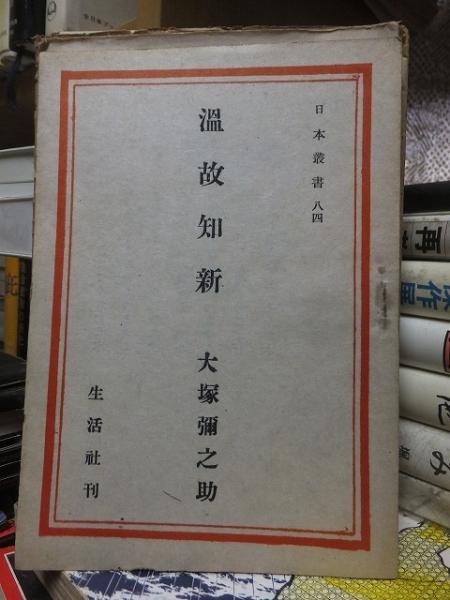 日本叢書 八四
溫故知新 大塚彌之助
生活社刊
再
作展